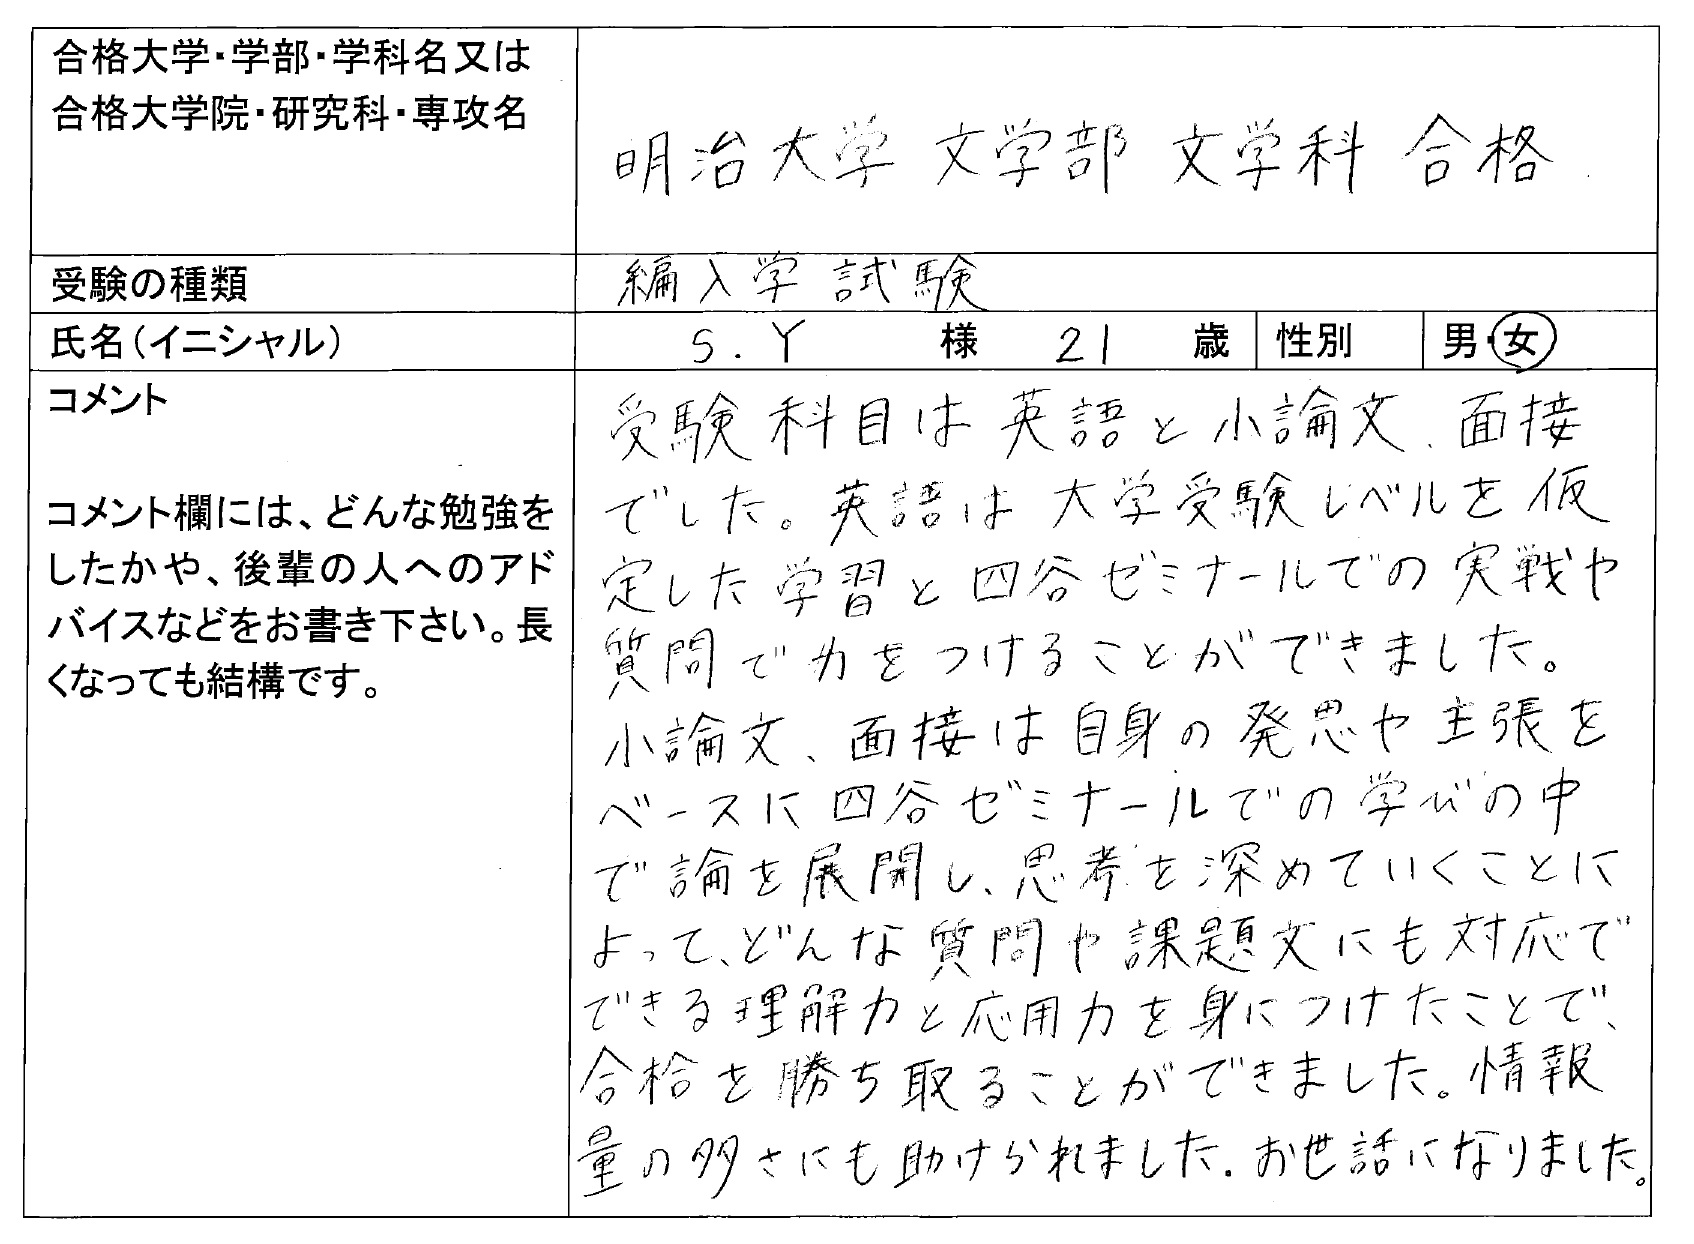 合格大学・学部・学科名又は
合格大学院・研究科・専攻名
明治大学 文学部 文学科 合格
受験の種類
編入学試験
氏名(イニシャル)
S.Y 様 21 歳 性別 男・女
コメント
コメント欄には、どんな勉強を
したかや、後輩の人へのアド
バイスなどをお書き下さい。長
くなっても結構です。
受験科目は英語と小論文、面接
でした。英語は大学受験レベルを仮
定した学習と四谷ゼミナールでの実戦や
質問で力をつけることができました。
小論文、面接は自身の発思や主張を
ベースに四谷ゼミナールでの学びの中
で論を展開し、思考を深めていくことに
よって、どんな質問や課題文にも対応で
できる理解力と応用力を身につけたことで、
合格を勝ち取ることができました。情報
量の多さにも助けられました。お世話になりました。